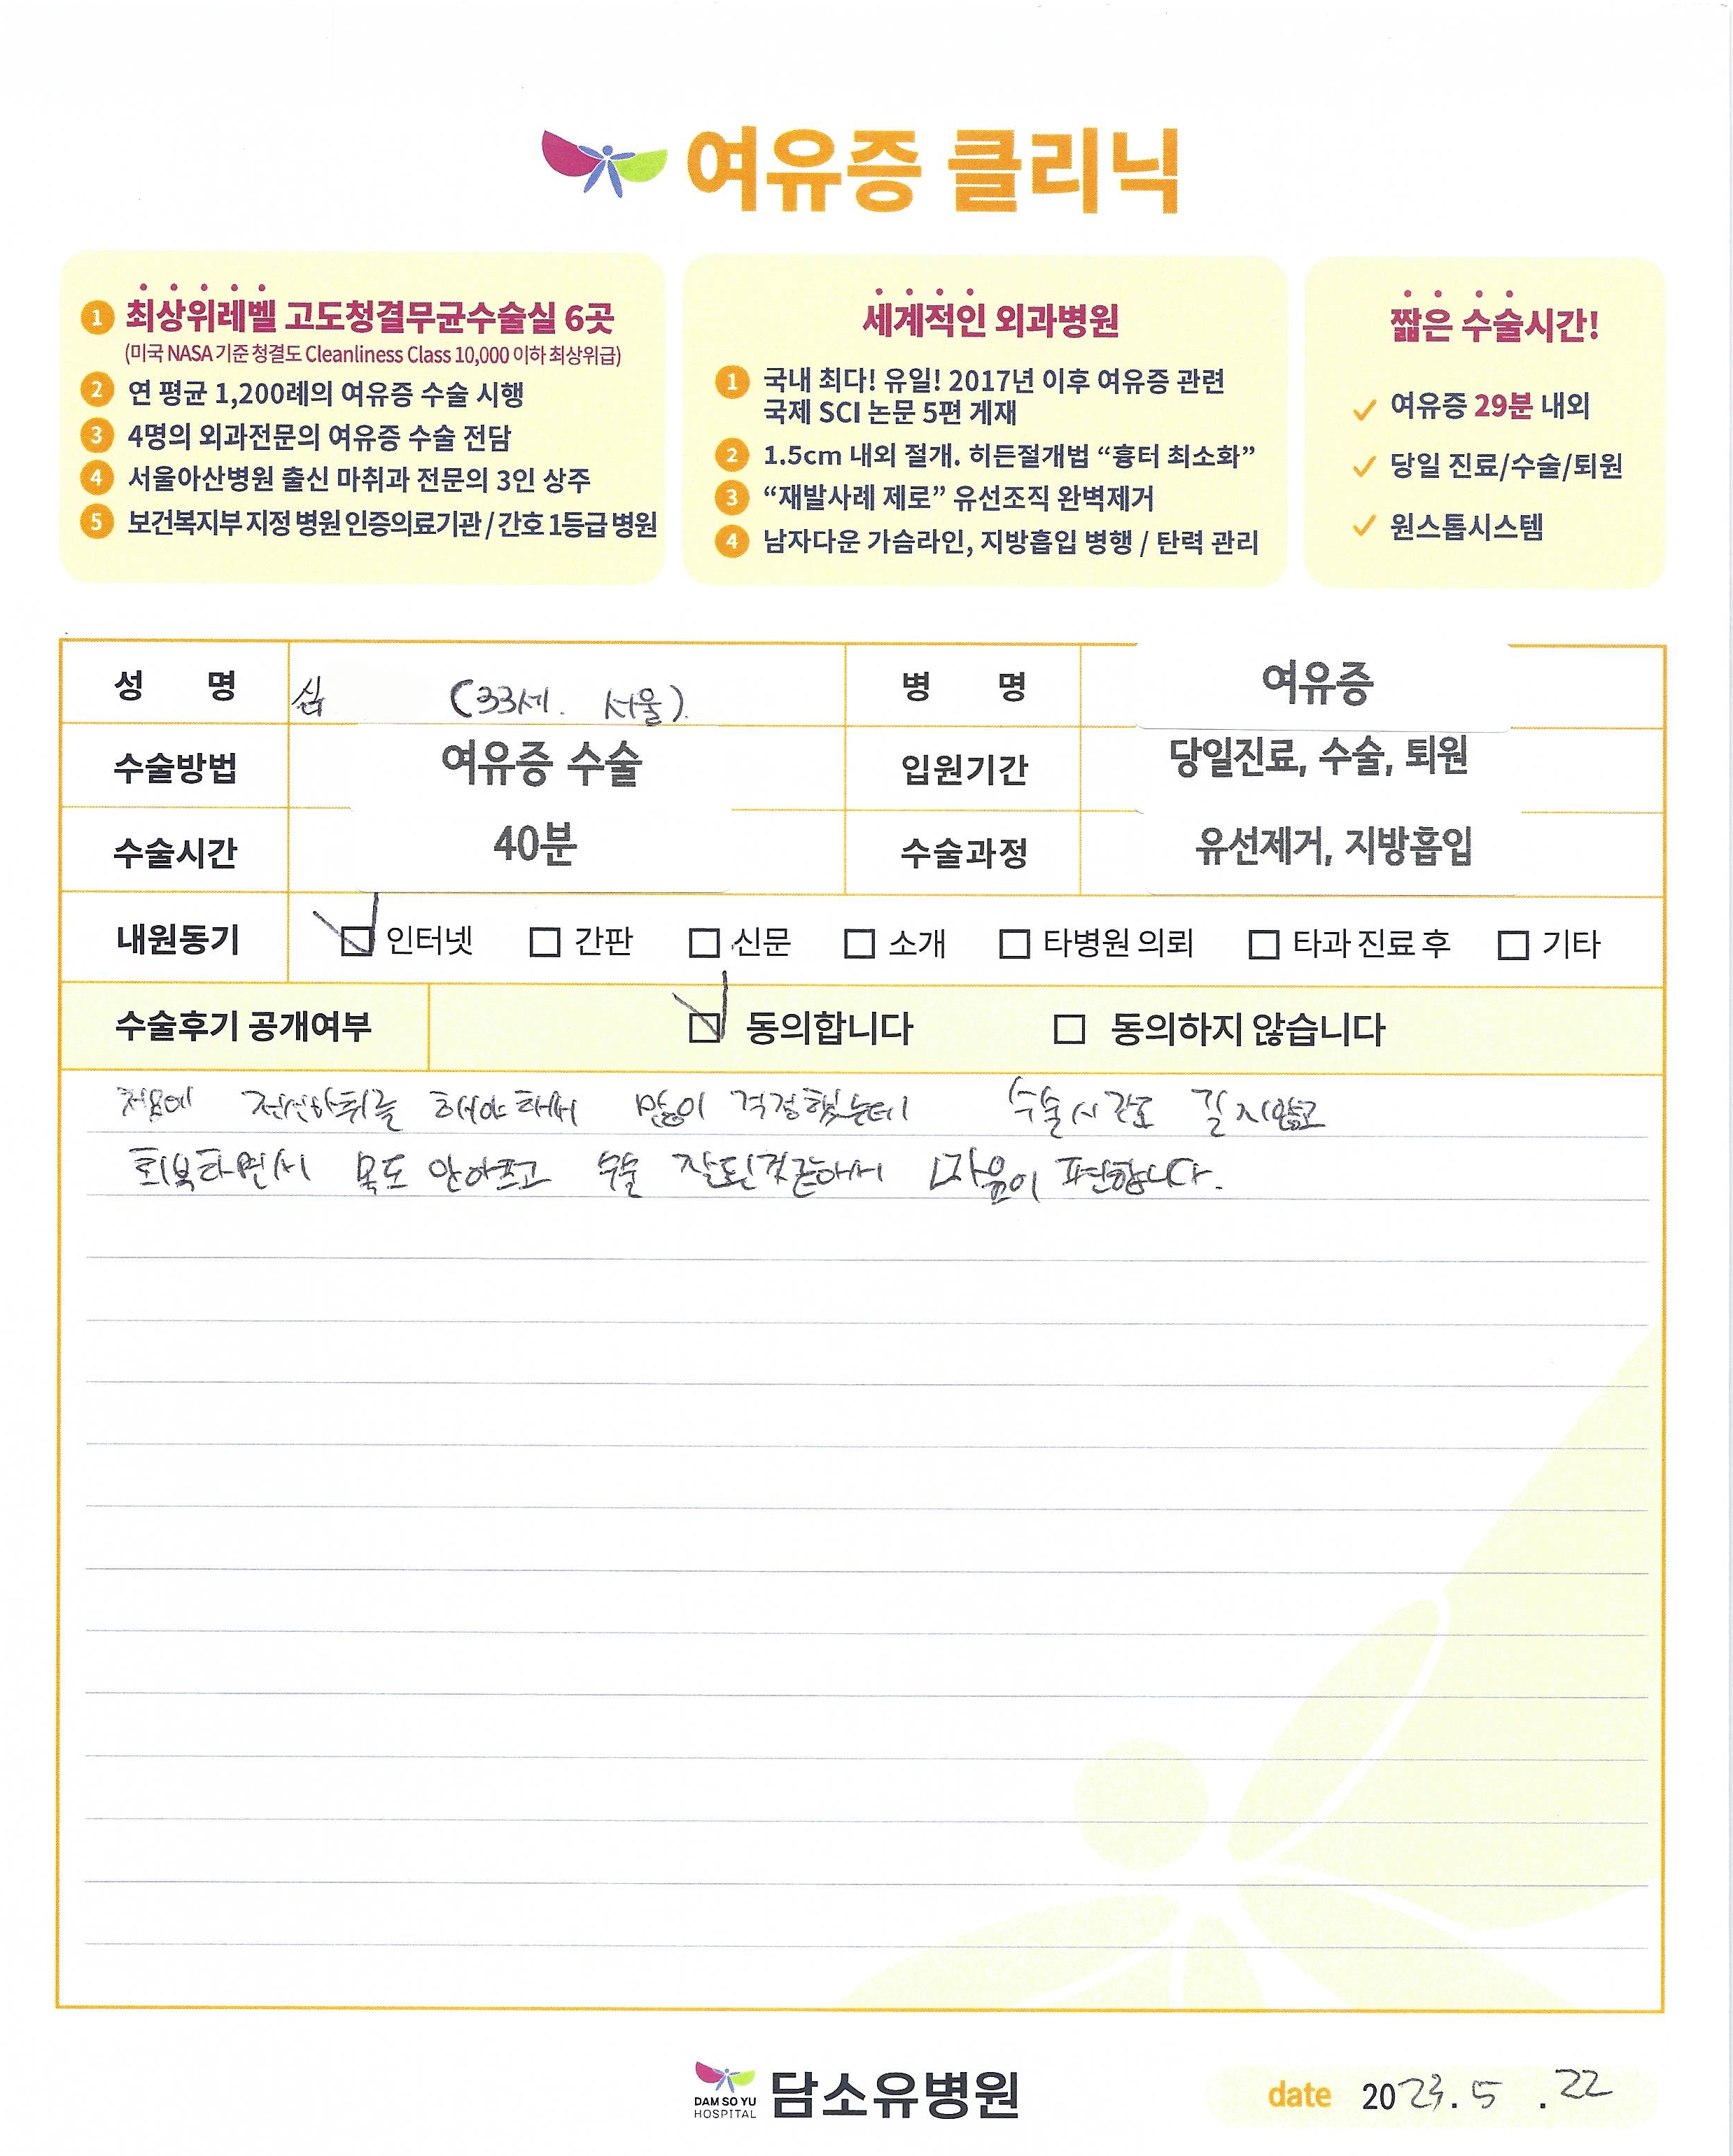 여유증 클리닉
1 최상위레벨 고도청결무균수술실 6곳
(미국 NASA 기준 청결도 Cleanliness Class 10,000 이하 최상위급)
2 연 평균 1,200례의 여유증 수술 시행
3 4명의 외과전문의 여유증 수술 전담
4 서울아산병원 출신 마취과 전문의 3인 상주
5 보건복지부 지정 병원 인증의료기관 / 간호 1등급 병원
세계적인 외과병원
1 국내 최다! 유일! 2017년 이후 여유증 관련
국제 SCI 논문 5편 게재
2 1.5cm 내외 절개. 히든절개법 “흉터 최소화”
3 “재발사례 제로” 유선조직 완벽제거
4 남자다운 가슴라인, 지방흡입 병행 / 탄력 관리
짧은 수술시간!
여유증 29분 내외
당일 진료/수술/퇴원
원스톱시스템
성 명 심 (33세. 서울). 병 명 여유증
수술방법 여유증 수술 입원기간 당일진료, 수술, 퇴원
수술시간 40분 수술과정 유선제거, 지방흡입
내원동기 인터넷 간판 신문 소개 타병원 의뢰 타과 진료 후 기타
수술후기 공개여부 동의합니다 동의하지 않습니다
처음에 전신마취를 해야해서 많이 걱정했는데 수술시간도 길지않고
회복하면서 목도 안아프고 수술 잘된것같아서 마음이 편합니다.
DAM SO YU
HOSPITAL
담소유병원
date 2023.5 .22